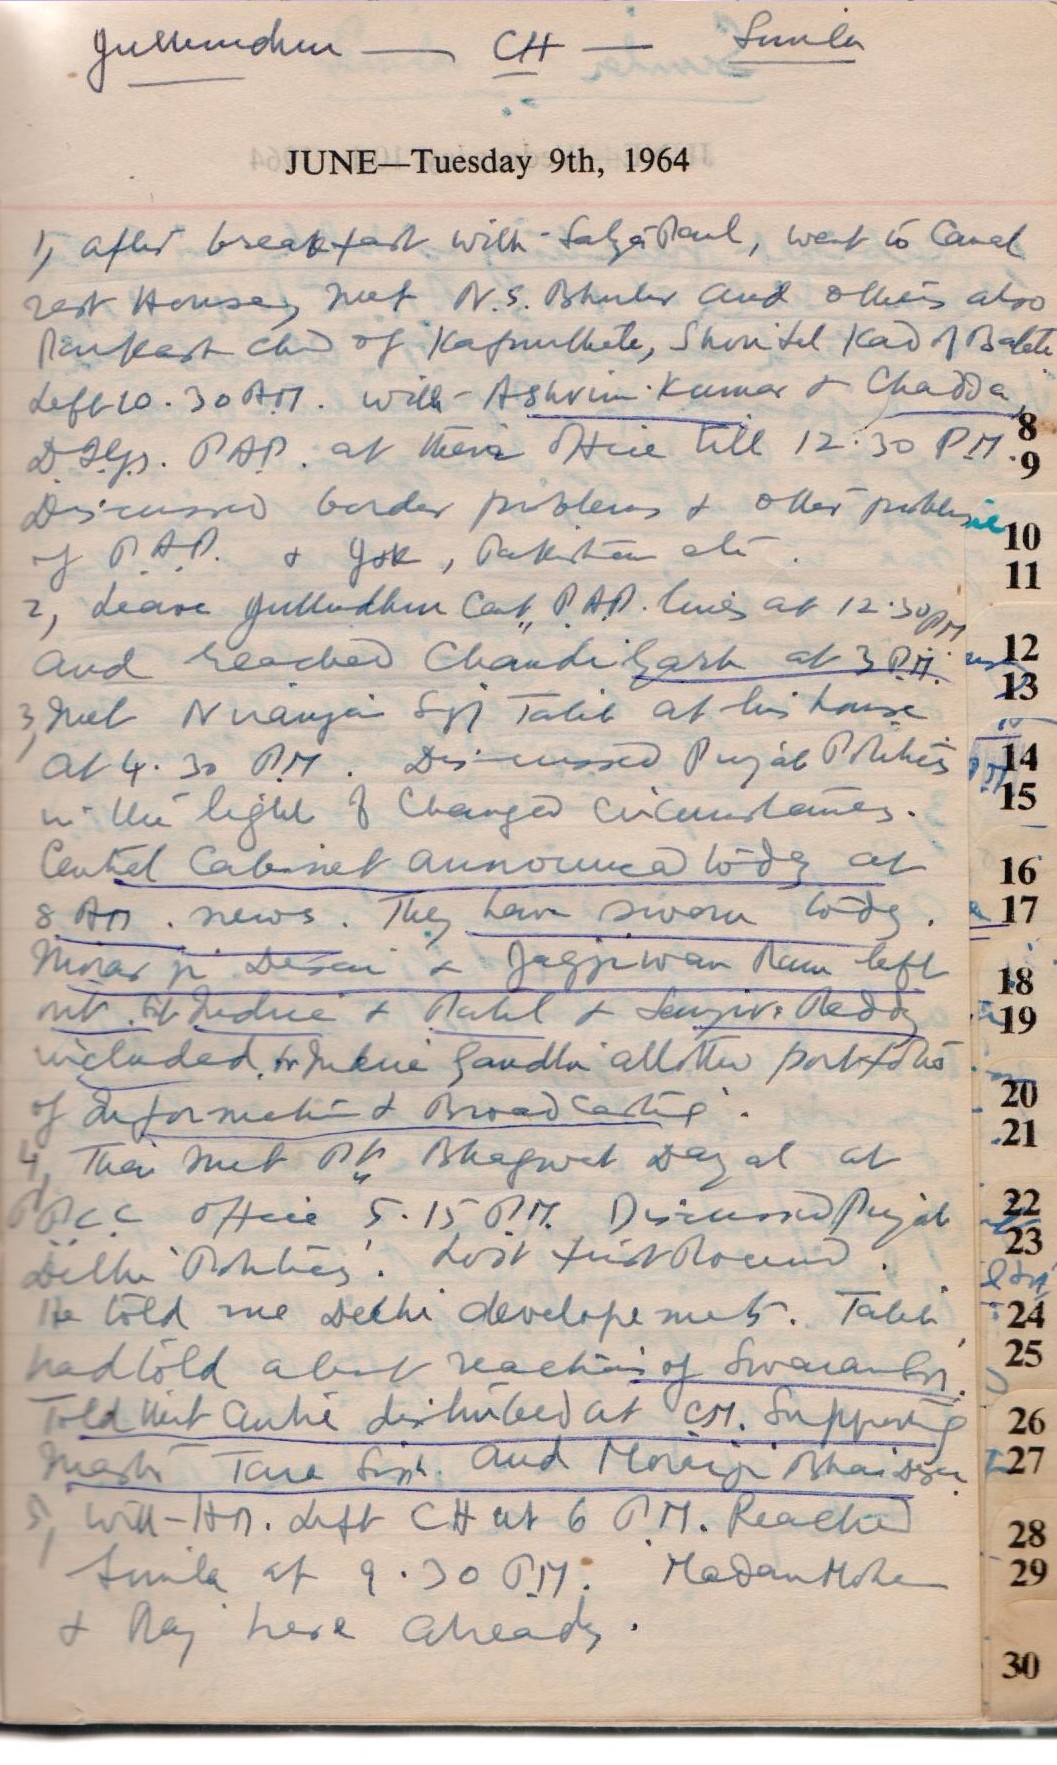 Jullundhur — CH — Simla
JUNE—Tuesday 9th, 1964
1, after breakfast with Satya Paul, went to Canal
rest House, met N.S. Bhuller and others also
of Kapurthala,
Left 10.30 AM. with Ashvini Kumar & Chadda
D.I.Gs. P.A.P. at their office till 12.30 P.M.
Discussed border problems & other problems
of P.A.P. & J&K, Pakistan etc.
2, Leave Jullundhur Cant, P.A.P. lines at 12.30 PM
and reached Chandigarh at 3 P.M.
3, Met Niranjan Singh Talib at his house
at 4.30 P.M. Discussed Punjab Politics
in the light of Changed Circumstances.
Central Cabinet announced today at
8 AM. news. They have sworn today.
Morarji Desai & Jagjiwan Ram left
out. Indira & Patil & Sanjiva Reddy
included. Indira Gandhi allotted portfolio
of Information & Broadcasting.
4, Then met Pt. Bhagwat Dayal at
P.P.C.C office 5.15 P.M. Discussed Punjab
Delhi 'Politics'. Lost first Round.
He told me Delhi developemets. Talib
had told about reactions of Swaran Singh.
Told that distributed at CM. Supporting
Master Tara Singh. and Morarji Bhai Desai
5, With HM. Left CH at 6 P.M. Reached
Simla at 9.30 P.M. Madan Mohan
& Raj here already.
8
9
10
11
12
13
14
15
16
17
18
19
20
21
22
23
24
25
26
27
28
29
30